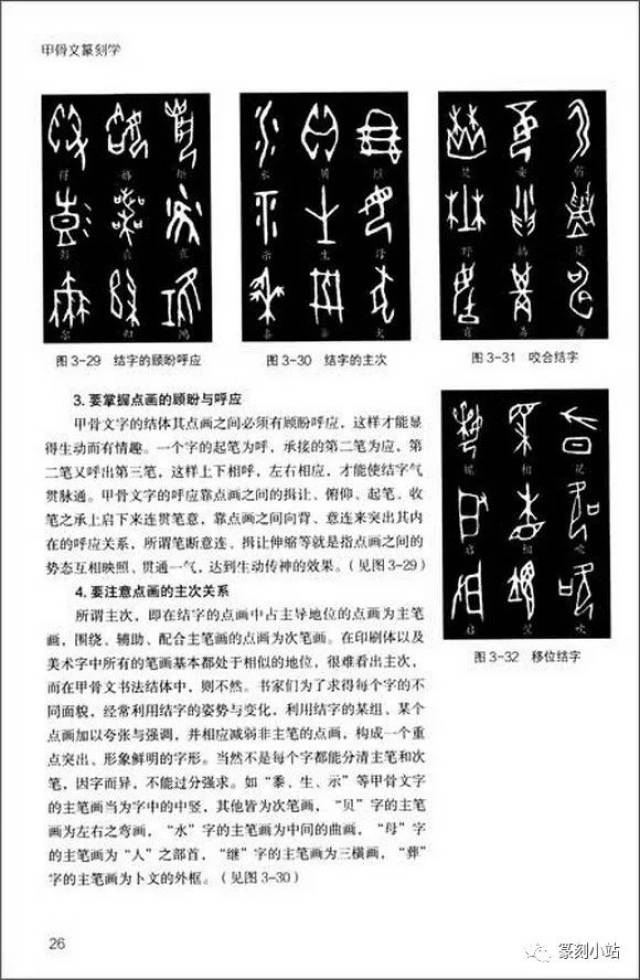 甲骨文篆刻学
图 3-29 结字的顾盼呼应
图 3-30 结字的主次
图 3-31 咬合结字
3.要掌握点画的顾盼与呼应
甲骨文字的结体其点画之间必须有顾盼呼应，这样才能显
得生动而有情趣。一个字的起笔为呼，承接的第二笔为应，第
二笔又呼出第三笔，这样上下相呼，左右相应，才能使结字气
贯脉通。甲骨文字的呼应靠点画之间的揖让、俯仰、起笔、收
笔之承上启下来连贯笔意，靠点画之间向背、意连来突出其内
在的呼应关系，所谓笔断意连、揖让伸缩等就是指点画之间的
势态互相映照、贯通一气，达到生动传神的效果。（见图3-29）
4.要注意点画的主次关系
所谓主次，即在结字的点画中占主导地位的点画为主笔
画，围绕、辅助、配合主笔画的点画为次笔画。在印刷体以及
美术字中所有的笔画基本都处于相似的地位，很难看出主次，
而在甲骨文书法结体中，则不然。书家们为了求得每个字的不
同面貌，经常利用结字的姿势与变化，利用结字的某组、某个
点画加以夸张与强调，并相应减弱非主笔的点画，构成一个重
点突出、形象鲜明的字形。当然不是每个字都能分清主笔和次
笔，因字而异，不能过分强求。如“黍、生、示”等甲骨文字
的主笔画当为字中的中竖，其他皆为次笔画，“贝”字的主笔
画为左右之弯画，“水”字的主笔画为中间的曲画，“母”字
的主笔画为“人”之部首，“继”字的主笔画为三横画，“葬”
字的主笔画为卜文的外框。（见图 3-30）
图 3-32 移位结字
26
篆刻小站